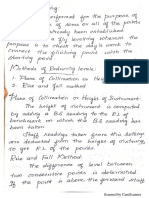 is performed for the purpose of
of some of all the points
already been established
is a fly levelling wherein the
purpose is to check the day's work to
connect the finishing point with the
starting point.
Methods of Reducing levels:-
- Plane of Collimation or Height of Instrument
- Rise and fall method
Plane of Collimation or Height of Instrument
height of instrument is computed
by adding a BS reading to the RL of
benchmark on which the BS reading
has been taken
Staff readings taken from this setting
are deducted from the height of instrument
to get R.L of the points.
Rise and Fall Method
The difference of level between
two consecutive points is determined
if the point is above the forward staff
Scanned by CamScanner